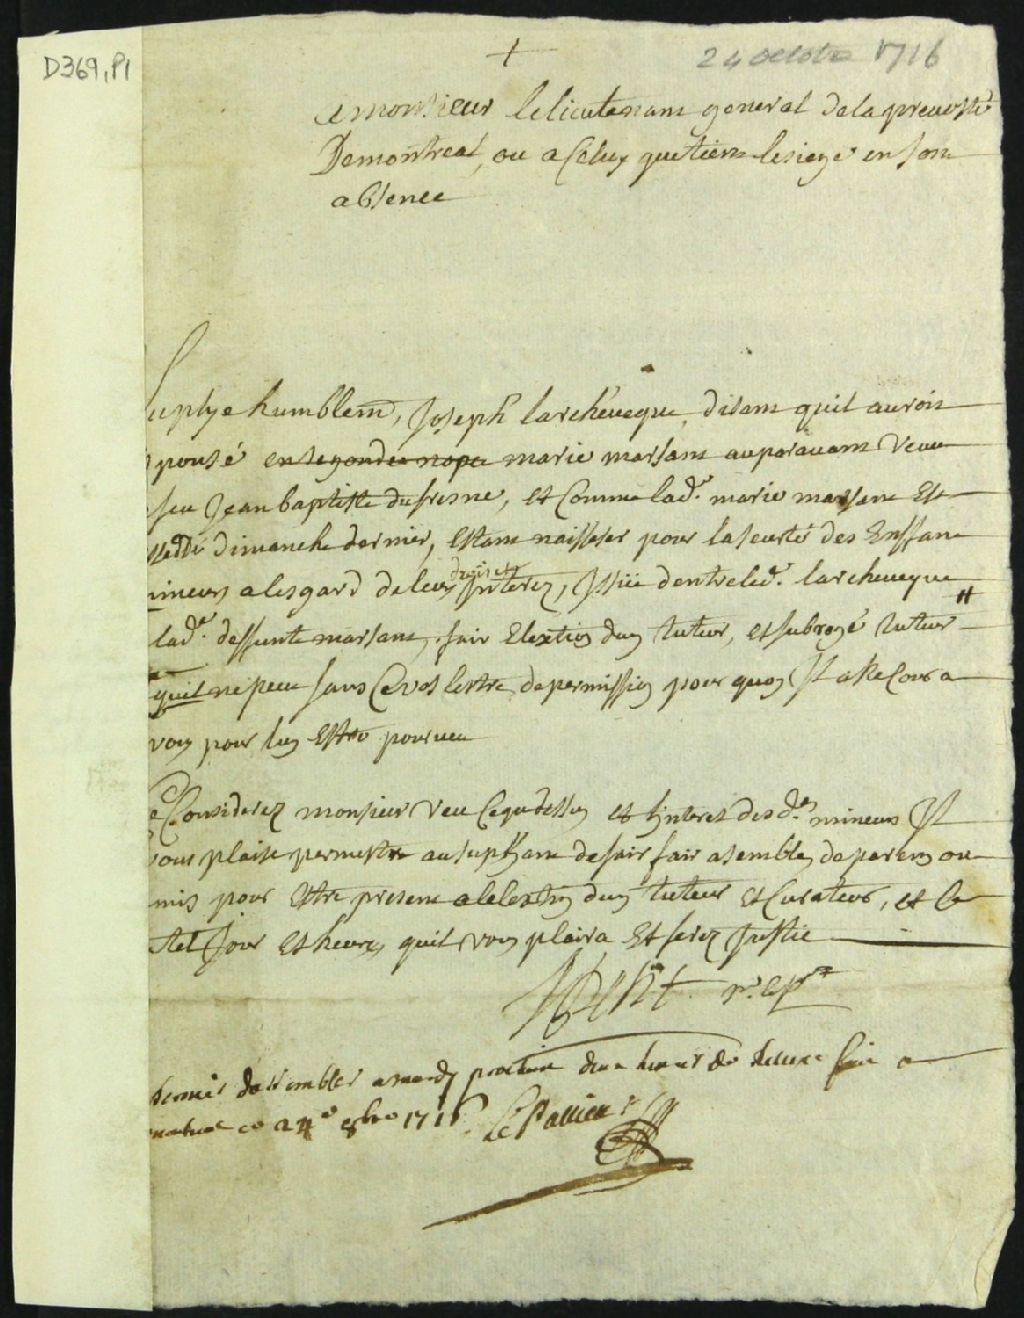 D369, P1
24 octobre 1716
+
a monsieur le lieutenant general de la prevosté
De montreal, ou a Celuy quetiens le siege en son
absence
suplye humblemt, Joseph larcheveque, disant quil auroit
pousé en segondes nopce marie marsant auparavant veuve
feu Jean baptiste dufresne, et Comme lade. marie marsene est
dimanche dernier, estant naissesere pour la seurté des Enffans
mineurs alesgard de leurs droits et Interez, Issüe dentre led. larcheveque
lade. deffunte marsant, fair Elextion dun tuteur, et subrogé tuteur
quil ne peu sans Ce vos lettre de permission pour quoy Il a Recours a
vous pour luy Estre pourveu
Ce Consideréz monsieur veu Ce que dessus et linterest desde. mineurs Il
vous plaise permettre au supliant de fair fair asemblée de parens ou
mis pour Etre present a lelextion dun tuteur et Curateur, et Ce
tel Jour et heure, quil vous plaira Et serez Justice
permis dassembler a mardy prochain deux heures de relevée fait a
ce 24e 8bre 1716. Le Pallieur